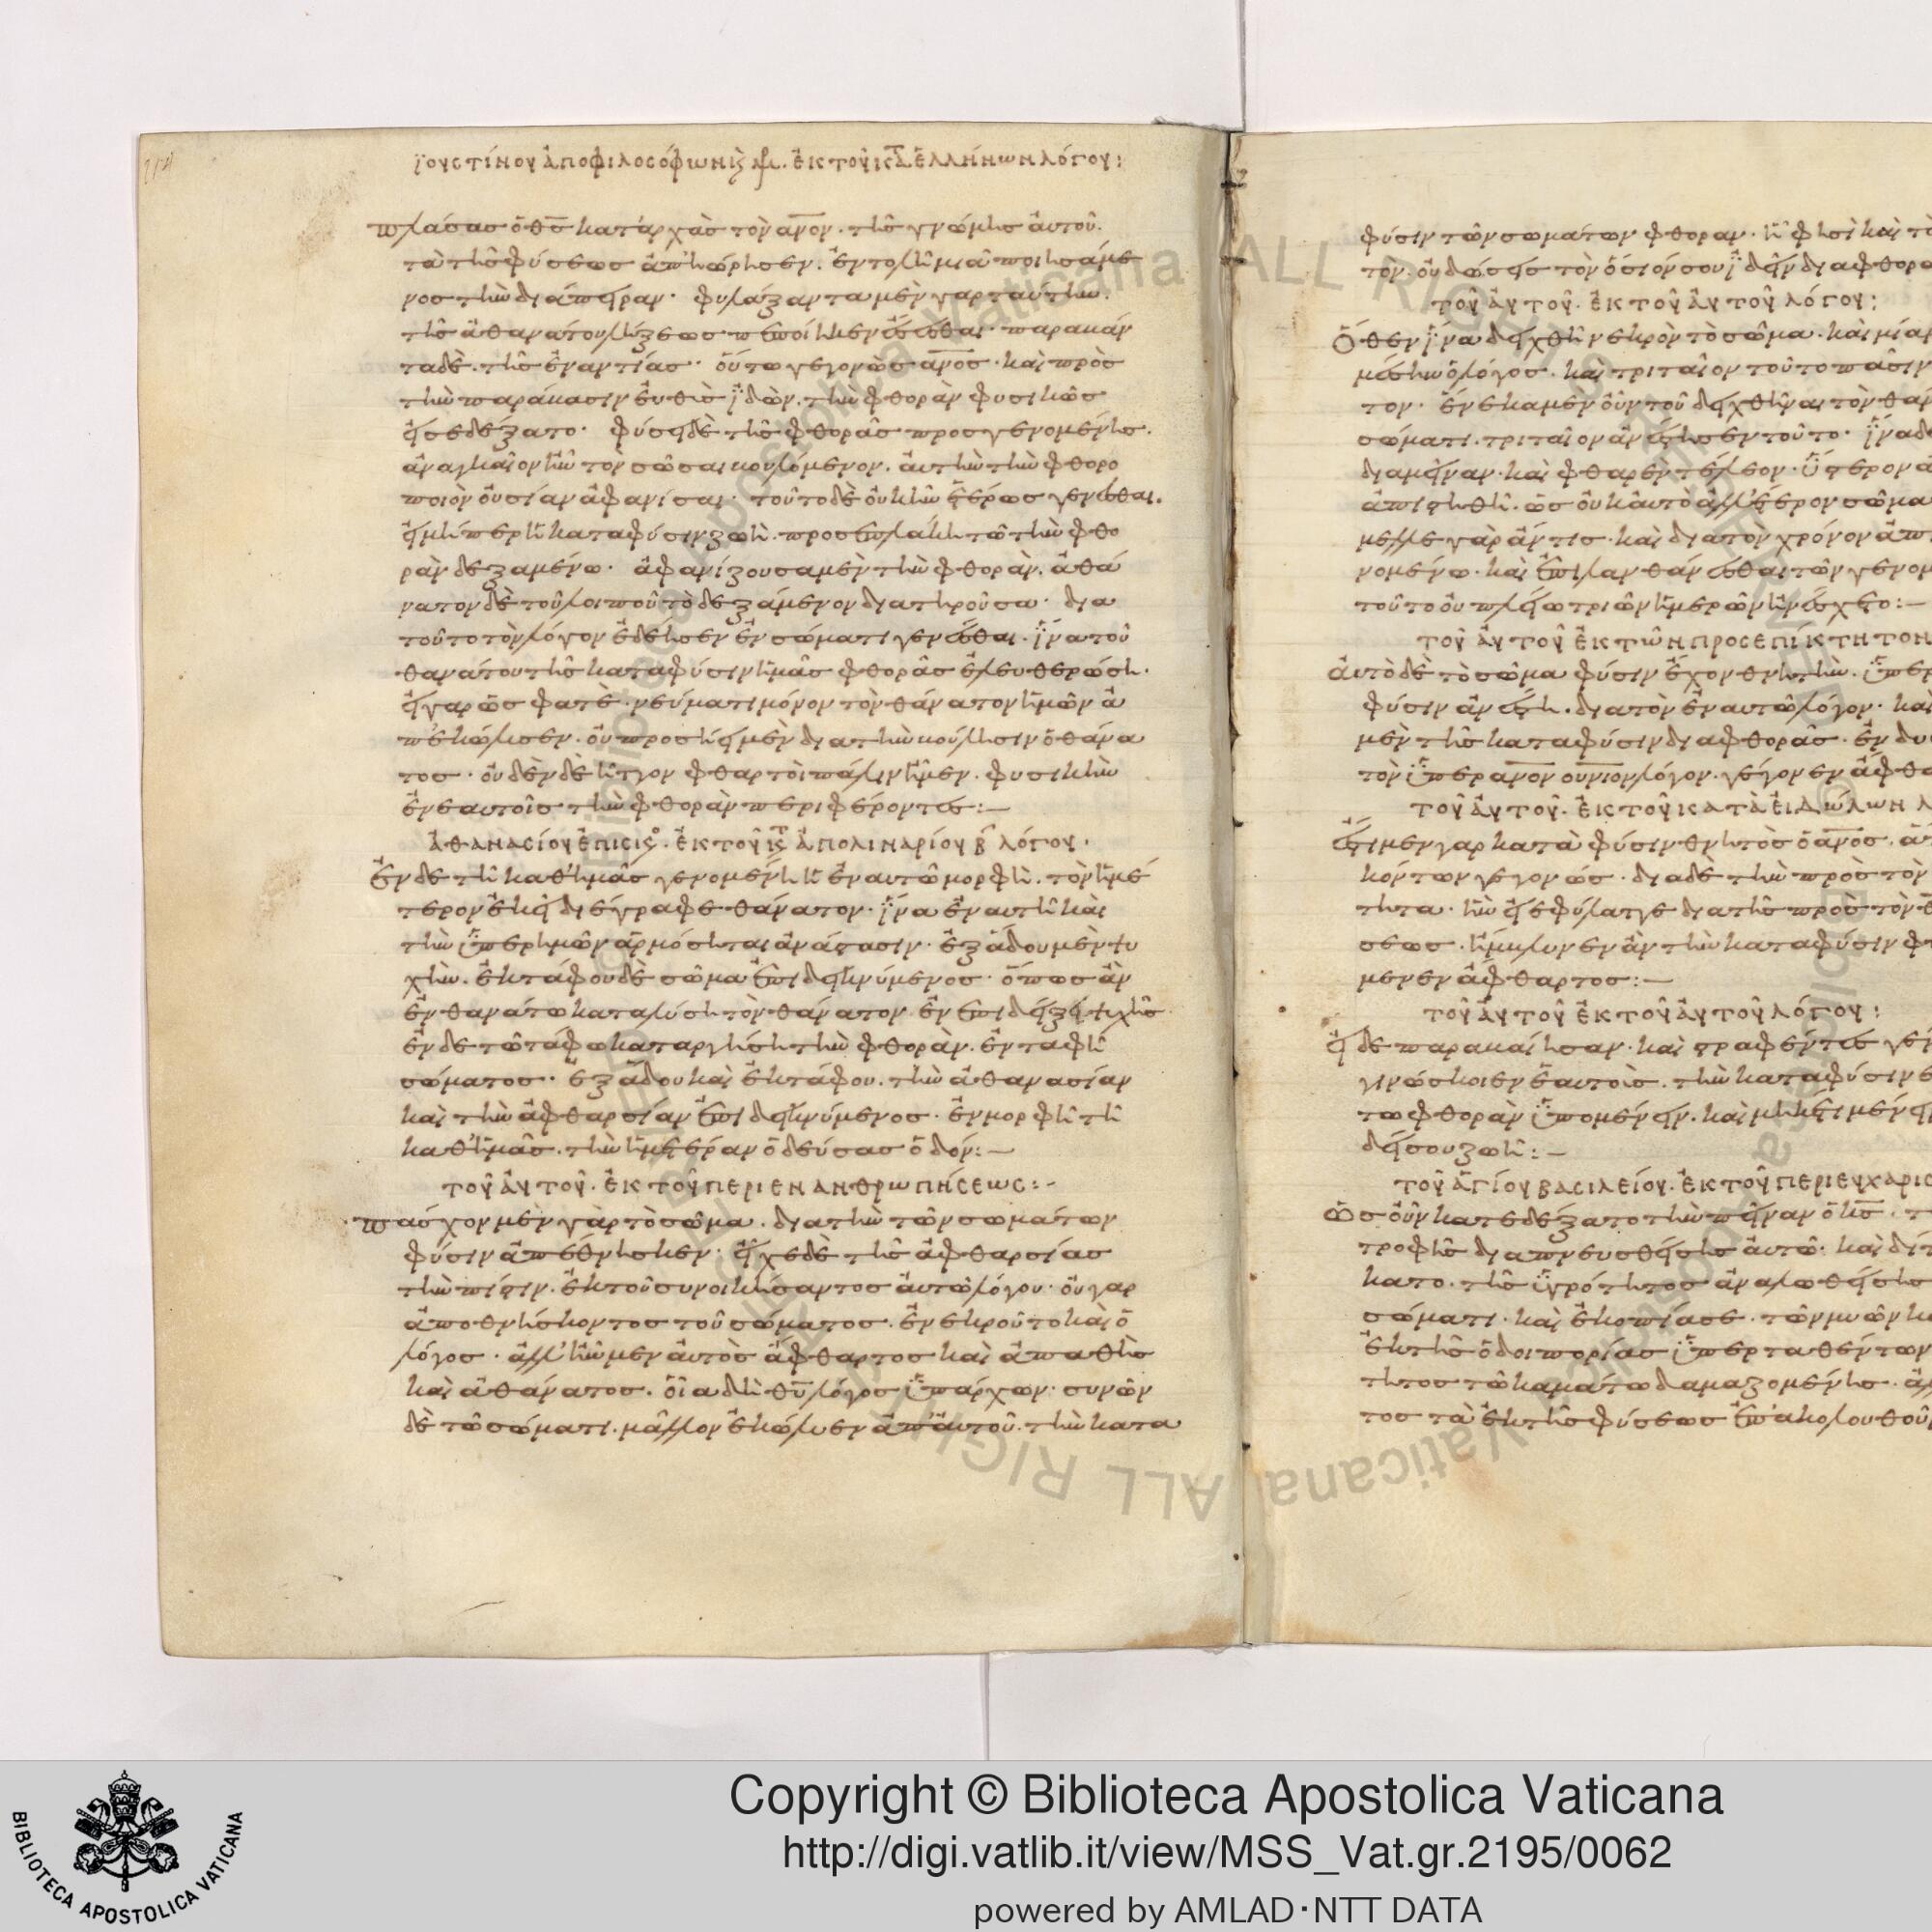 ἰουστίνου ἀπο φιλοσόφων ἐκ τοῦ κατὰ ἑλλήνων λόγου:
πλάσας ὁ θς κατ' ἀρχὰς τὸν ανον. τῆς γνώμης αὐτοῦ.
τὰ τῆς φύσεως ἀπηώρησεν. ἐντολῆ μιᾶ ποιησάμε
νος τὴν διάπειραν. φυλάξαντα μὲν γαρ ταύτην.
τῆς ἀθανάτου λήξεως πεποίηκεν ἔσεσθαι. παραβάν
τα δὲ. τῆς ἐναντίας. οὕτω γεγονὼς ανος. καὶ πρὸς
τὴν παράβασιν εὐθὺς ἰδὼν. τὴν φθορὰν φυσικῶς
εἰσεδέξατο. φύσει δὲ τῆς φθορᾶς προσγενομένης.
ἀναγκαῖον ἦν τὸν σῶσαι βουλόμενον. αὐτὴν τὴν φθορο
ποιὸν οὐσίαν ἀφανίσαι. τοῦτο δὲ οὐκ ἦν ἑτέρως γενέσθαι.
εἰ μήπερ ἡ κατα φύσιν ζωὴ. προσεπλάκη τῶ τὴν φθο
ρὰν δεξαμένω. ἀφανίζουσα μὲν τὴν φθορὰν. ἀθά
νατον δὲ τοῦ λοιποῦ τὸ δεξάμενον διατηροῦσα. δια
τοῦτο τὸν λόγον ἐδέησεν ἐν σώματι γενέσθαι. ἵνα τοῦ
θανάτου τῆς κατα φύσιν ἡμᾶς φθορᾶς ἐλευθερώση.
εἰ γαρ ὥς φατὲ. νεύματι μόνον τὸν θάνατον ἡμῶν ἀ
πεκώλυσεν. οὐ προσήει μὲν δια τὴν βούλησιν ὁ θάνα
τος. οὐδὲν δὲ ἧττον φθαρτοὶ πάλιν ἦμεν. φυσικὴν
ἐν εαυτοῖς τὴν φθορὰν περιφέροντες:—
ἀθανασίου ἐπισκ. ἐκ τοῦ κατ ἀπολιναρίου β λόγου.
ἐν δὲ τῆ καθ' ἡμᾶς γενομένη ἢ ἐν αυτῶ μορφῆ. τὸν ἡμέ
τερον ἐκεῖ διέγραφε θάνατον. ἵνα ἐν αυτῆ καὶ
τὴν ὑπερ ημῶν ἁρμόσηται ἀνάστασιν. ἐξ ἅδου μὲν ψυ
χὴν. ἐκ τάφου δὲ σῶμα ἐπιδεικνύμενος. ὅπως ἂν
ἐν θανάτω καταλύση τὸν θάνατον ἐν ἐπιδείξει ψυχῆς
ἐν δὲ τῶ τάφω καταργήση τὴν φθορὰν. ἐν ταφῆ
σώματος. ἐξ ἅδου καὶ ἐκ τάφου. τὴν ἀθανασίαν
καὶ τὴν ἀφθαρσίαν ἐπιδεικνύμενος. ἐν μορφῆ τῆ
καθ' ἡμᾶς. τὴν ἡμετέραν ὁδεύσας ὁδόν:—
τοῦ αὐτοῦ. ἐκ τοῦ περι ενανθρωπήσεως:-
πάσχον μὲν γὰρ τὸ σῶμα. δια τὴν τῶν σωμάτων
φύσιν ἀπέθνησκεν. εἶχε δὲ τῆς ἀφθαρσίας
τὴν πίστιν. ἐκ τοῦ συνοικήσαντος αὐτῶ λόγου. οὐ γαρ
ἀποθνήσκοντος τοῦ σώματος. ἐνεκροῦτο καὶ ὁ
λόγος. ἀλλ' ἦν μεν αὐτὸς ἄφθαρτος καὶ ἀπαθὴς
καὶ ἀθάνατος. οἷα δὴ θυ λόγος ὑπάρχων. συνῶν
δὲ τῶ σώματι. μᾶλλον ἐκώλυεν ἀπ' αὐτοῦ. τὴν κατα
φύσιν τῶν σωμάτων φθοραν. ἧ φησὶ καὶ τὸ
τον. οὐ δώσεις τὸν ὅσιόν σου ἰδεῖν διαφθορα
τοῦ αὐτοῦ. ἐκ τοῦ αὐτοῦ λόγου:
ὅθεν ἵνα δειχθῆ νεκρὸν τὸ σῶμα. και μίαν
μέσην ὁ λόγος. καὶ τριταῖον τοῦτο πᾶσιν
τον. ἕνεκα μεν οὖν τοῦ δειχθῆναι τὸν θαν
σώματι. τριταῖον ἀνέστησεν τοῦτο. ἵνα δὲ
διαμεῖναν. καὶ φθαρὲν τέλεον. ὕστερον ἀ
ἀπιστηθῆ. ὡς οὐκ αὐτὸ ἀλλ' ἕτερον σῶμα
μελλε γὰρ ἄν τις. καὶ δια τὸν χρόνον ἀπι
νομένω. καὶ ἐπιλανθάνεσθαι τῶν γενομ
τοῦτο οὐ πλείω τριῶν ἡμερῶν ἠνέσχετο:—
τοῦ αὐτοῦ ἐκ τῶν προς επίκτητον
αὐτὸ δὲ τὸ σῶμα φύσιν ἔχον θνητὴν. ὑπερ
φύσιν ἀνέστη. δια τὸν ἐν αυτῶ λόγον. καὶ
μὲν τῆς κατα φύσιν διαφθορᾶς. ἐνδυ
τὸν ὑπερ ανον ουνιον λόγον. γέγονεν ἄφθα
τοῦ αὐτοῦ. ἐκ τοῦ κατὰ εἰδώλων λ
ἔστι μεν γαρ κατὰ φύσιν θνητὸς ὁ ανος. ἅτ
κόντων γεγονώς. δια δὲ τὴν πρὸς τὸν
τητα. ἣν εἰ εφύλαττε δια τῆς πρὸς τὸν
σεως. ἤμβλυνεν ἂν τὴν κατα φύσιν φθ
μενεν ἄφθαρτος:—
τοῦ αὐτοῦ ἐκ τοῦ αὐτοῦ λόγου:
εἰ δε παραβαίησαν. καὶ στραφέντες γέν
γινώσκοιεν ἑαυτοὺς. τὴν κατα φύσιν ἐ
τω φθορὰν ὑπομένειν. καὶ μηκέτι μὲν
δείσου ζωῆ:—
τοῦ ἁγίου βασιλείου. ἐκ τοῦ περι ευχαρισ
ὡς οὖν κατεδέξατο τὴν πεῖναν ὁ κς.
τροφῆς διαπνευσθείσης αὐτῶ. καὶ δί
κατο. τῆς ὑγρότητος ἀναλωθείσης
σώματι. καὶ ἐκοπίασε. τῶν μυῶν κα
ἐκ τῆς ὁδοιπορίας ὑπερταθέντων
τητος τῶ καμάτω δαμαζομένης.
τος τὰ ἐκ τῆς φύσεως ἐπακολουθοῦν
© Biblioteca Apostolica Vaticana ALL RIGHTS
BIBLIOTECA APOSTOLICA VATICANA
Copyright © Biblioteca Apostolica Vaticana
http://digi.vatlib.it/view/MSS_Vat.gr.2195/0062
powered by AMLAD·NTT DATA